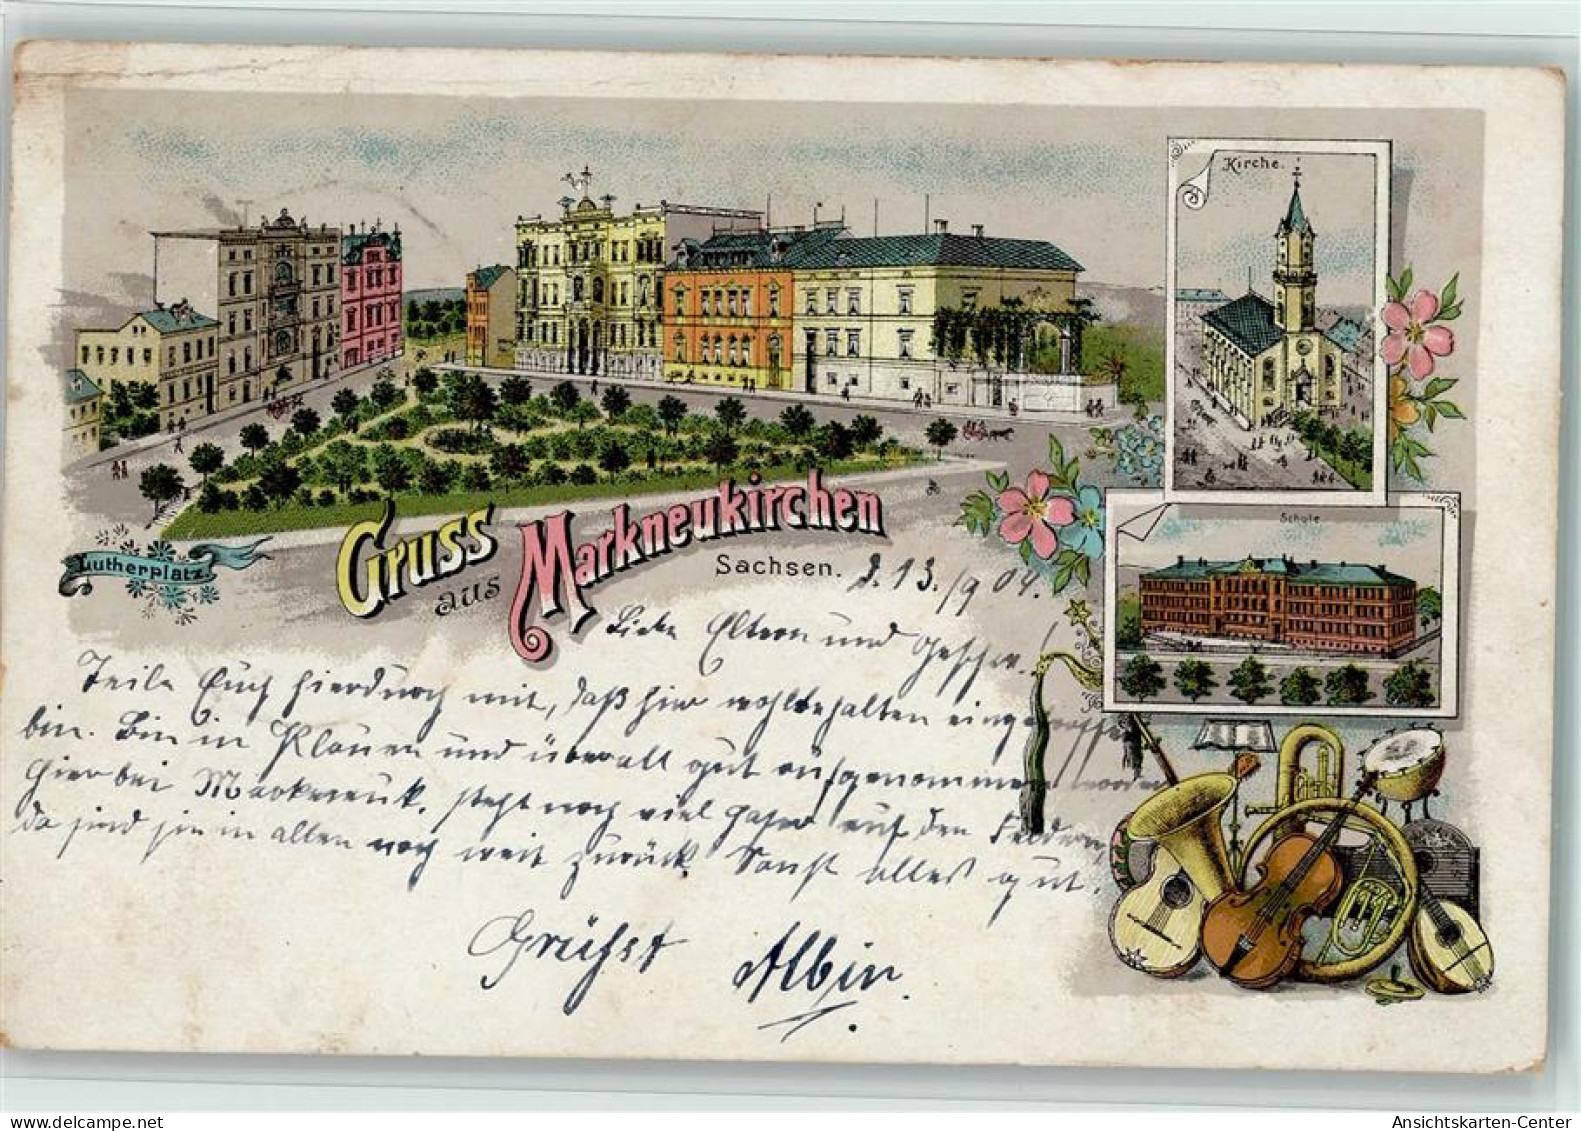 Kirche.
Schule
Lutherplatz.
Gruss
aus
Markneukirchen
Sachsen.
d. 13./9 04.
Liebe Eltern und Geschw.
Teile Euch hierdurch mit, daß hier wohlbehalten eingetroffen
bin. Bin in Plauen und überall gut aufgenommen worden
Hier bei Markneuk. steht noch viel Hafer auf den Feldern,
da sind sie in allen noch weit zurück. Sonst alles gut.
Grüßt Albin.
Ansichtskarten-Center